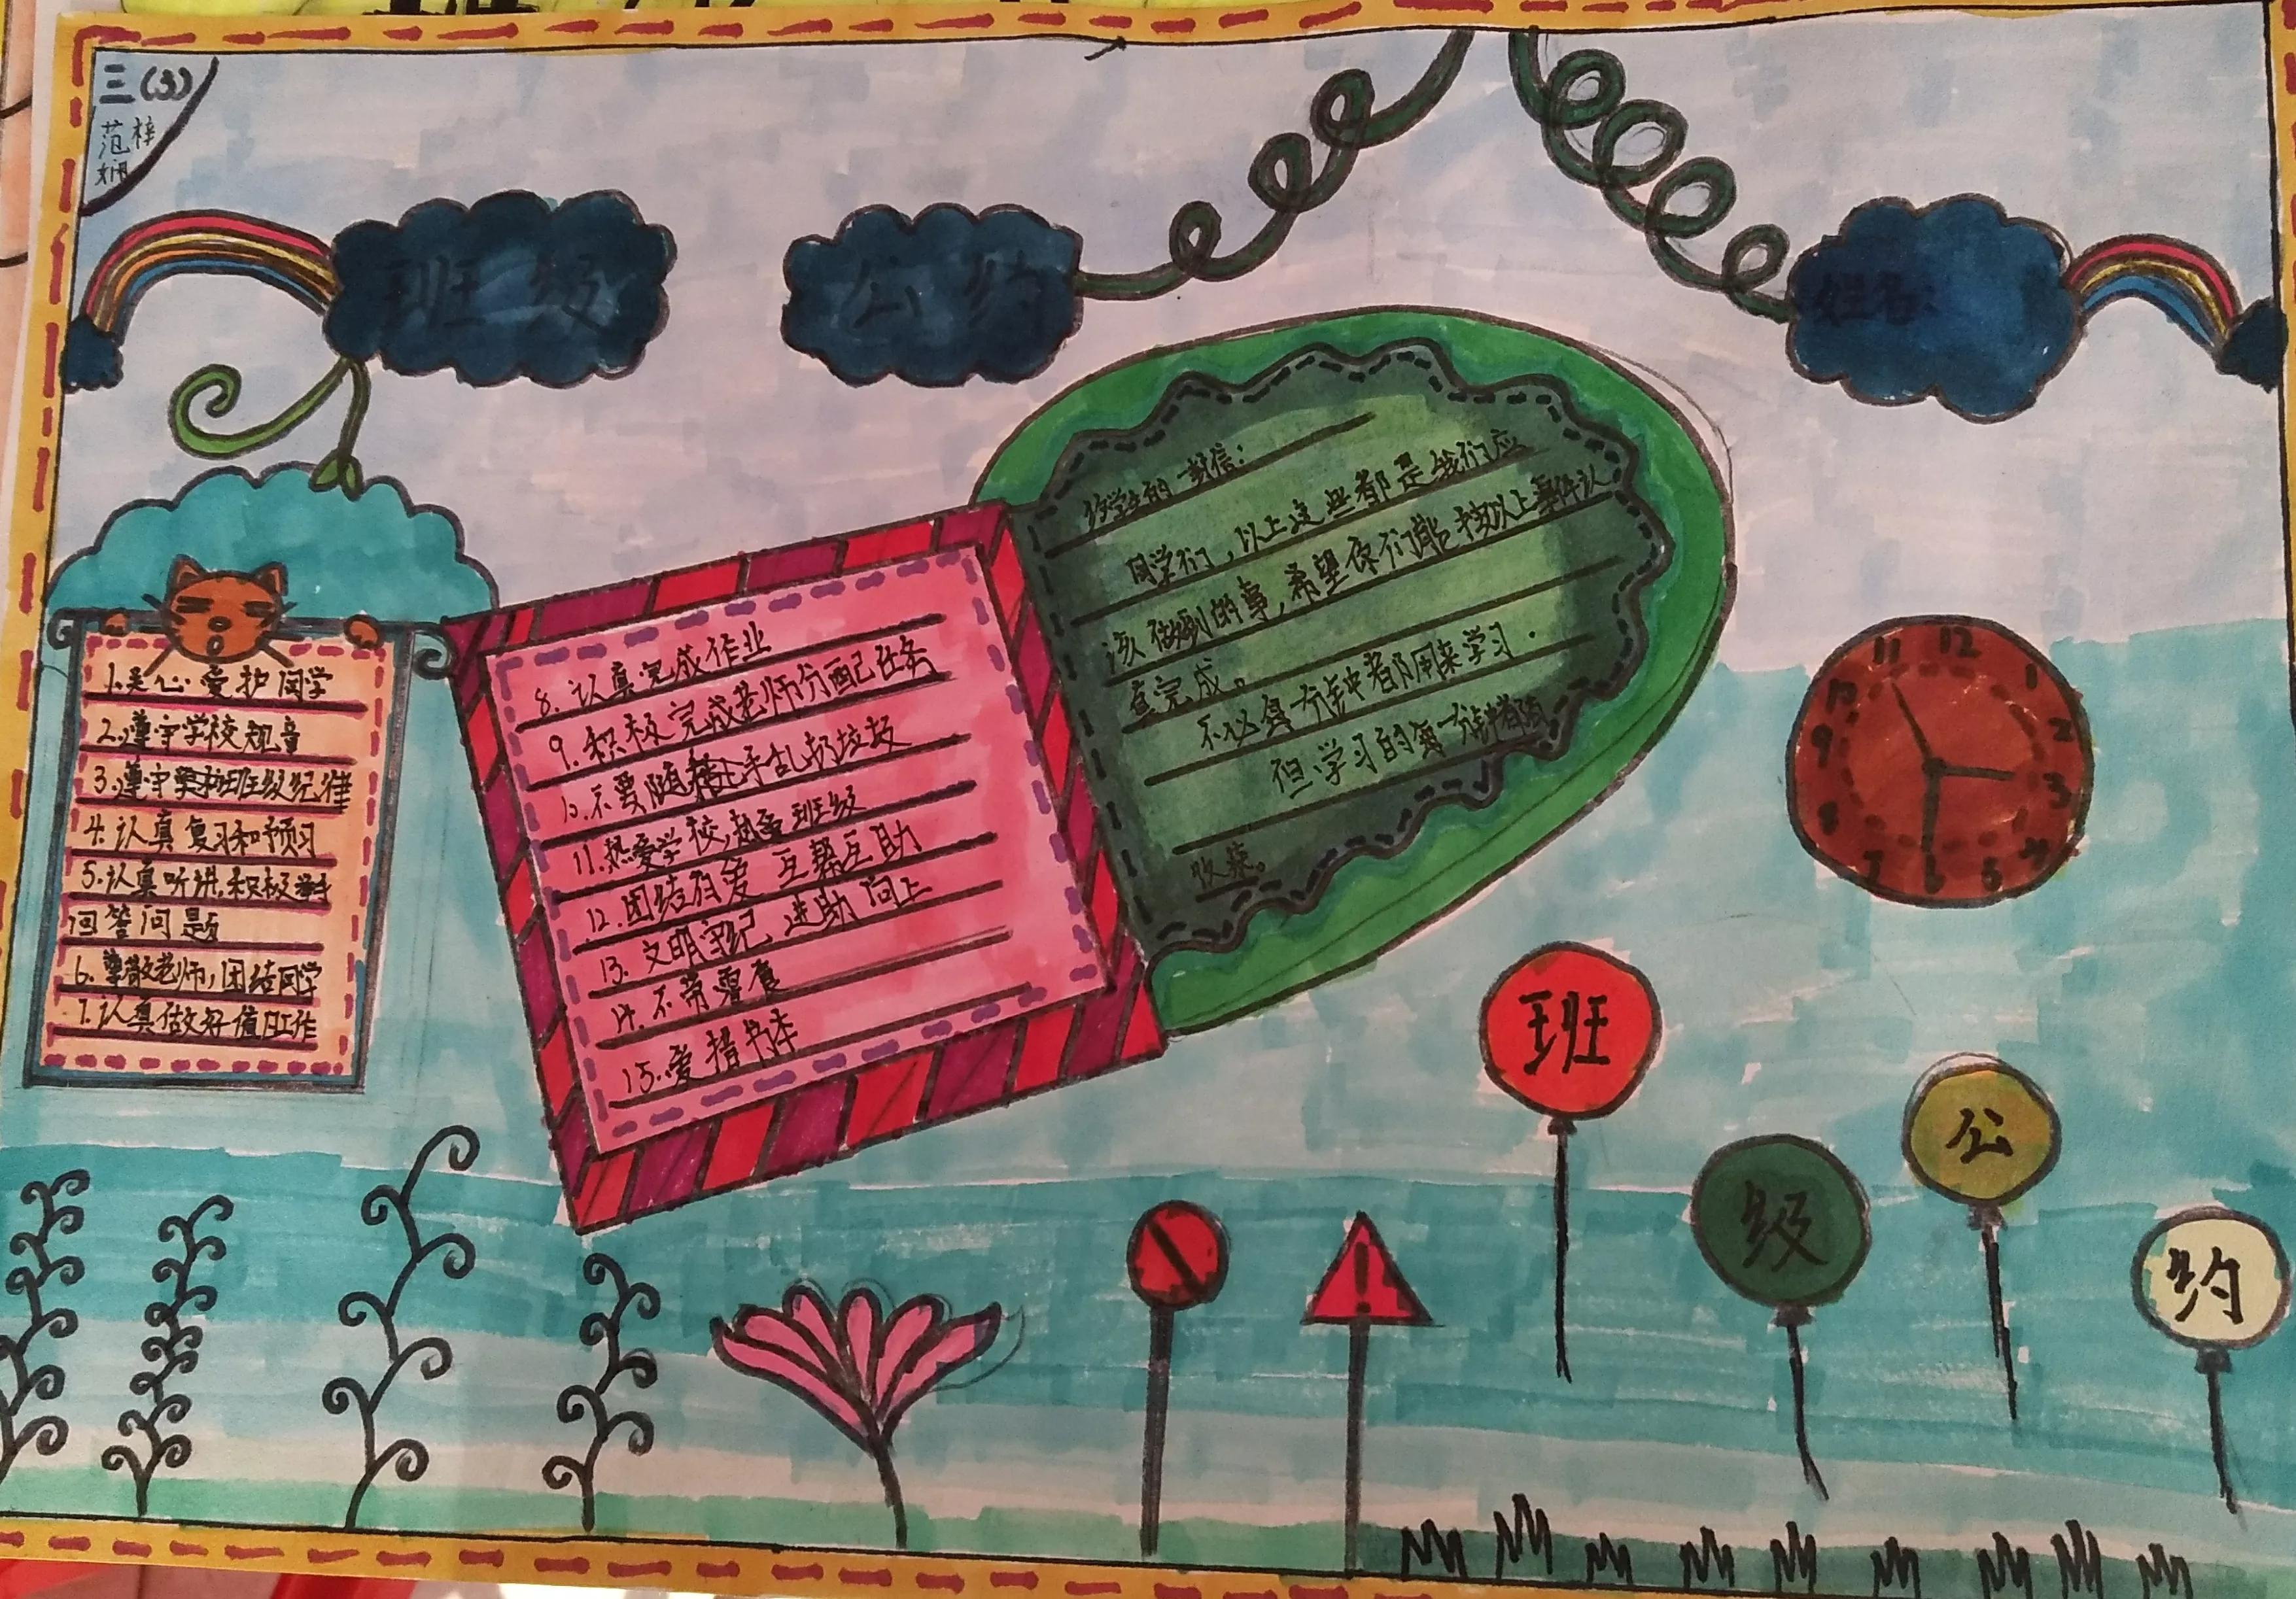 三(3)
范梓
娴
班级
公约
姓名:
1.关心爱护同学
2.遵守学校规章
3.遵守学班级纪律
4.认真复习和预习
5.认真听讲,积极举手
回答问题
6.尊敬老师,团结同学
7.认真做好值日工作
8.认真完成作业
9.积极完成老师分配任务
10.不要随手乱扔垃圾
11.热爱学校,热爱班级
12.团结有爱 互帮互助
13.文明守纪 进助向上
14.不带零食
15.爱惜书本
给学生的一封信:
同学们,以上这些都是我们应
该做到的事,希望你们能按以上事件认
真完成。
不必每分钟都用来学习.
但学习的每一分钟都有
收获。
11 12 1
10 2
9 3
8 4
7 6 5
班
级
公
约